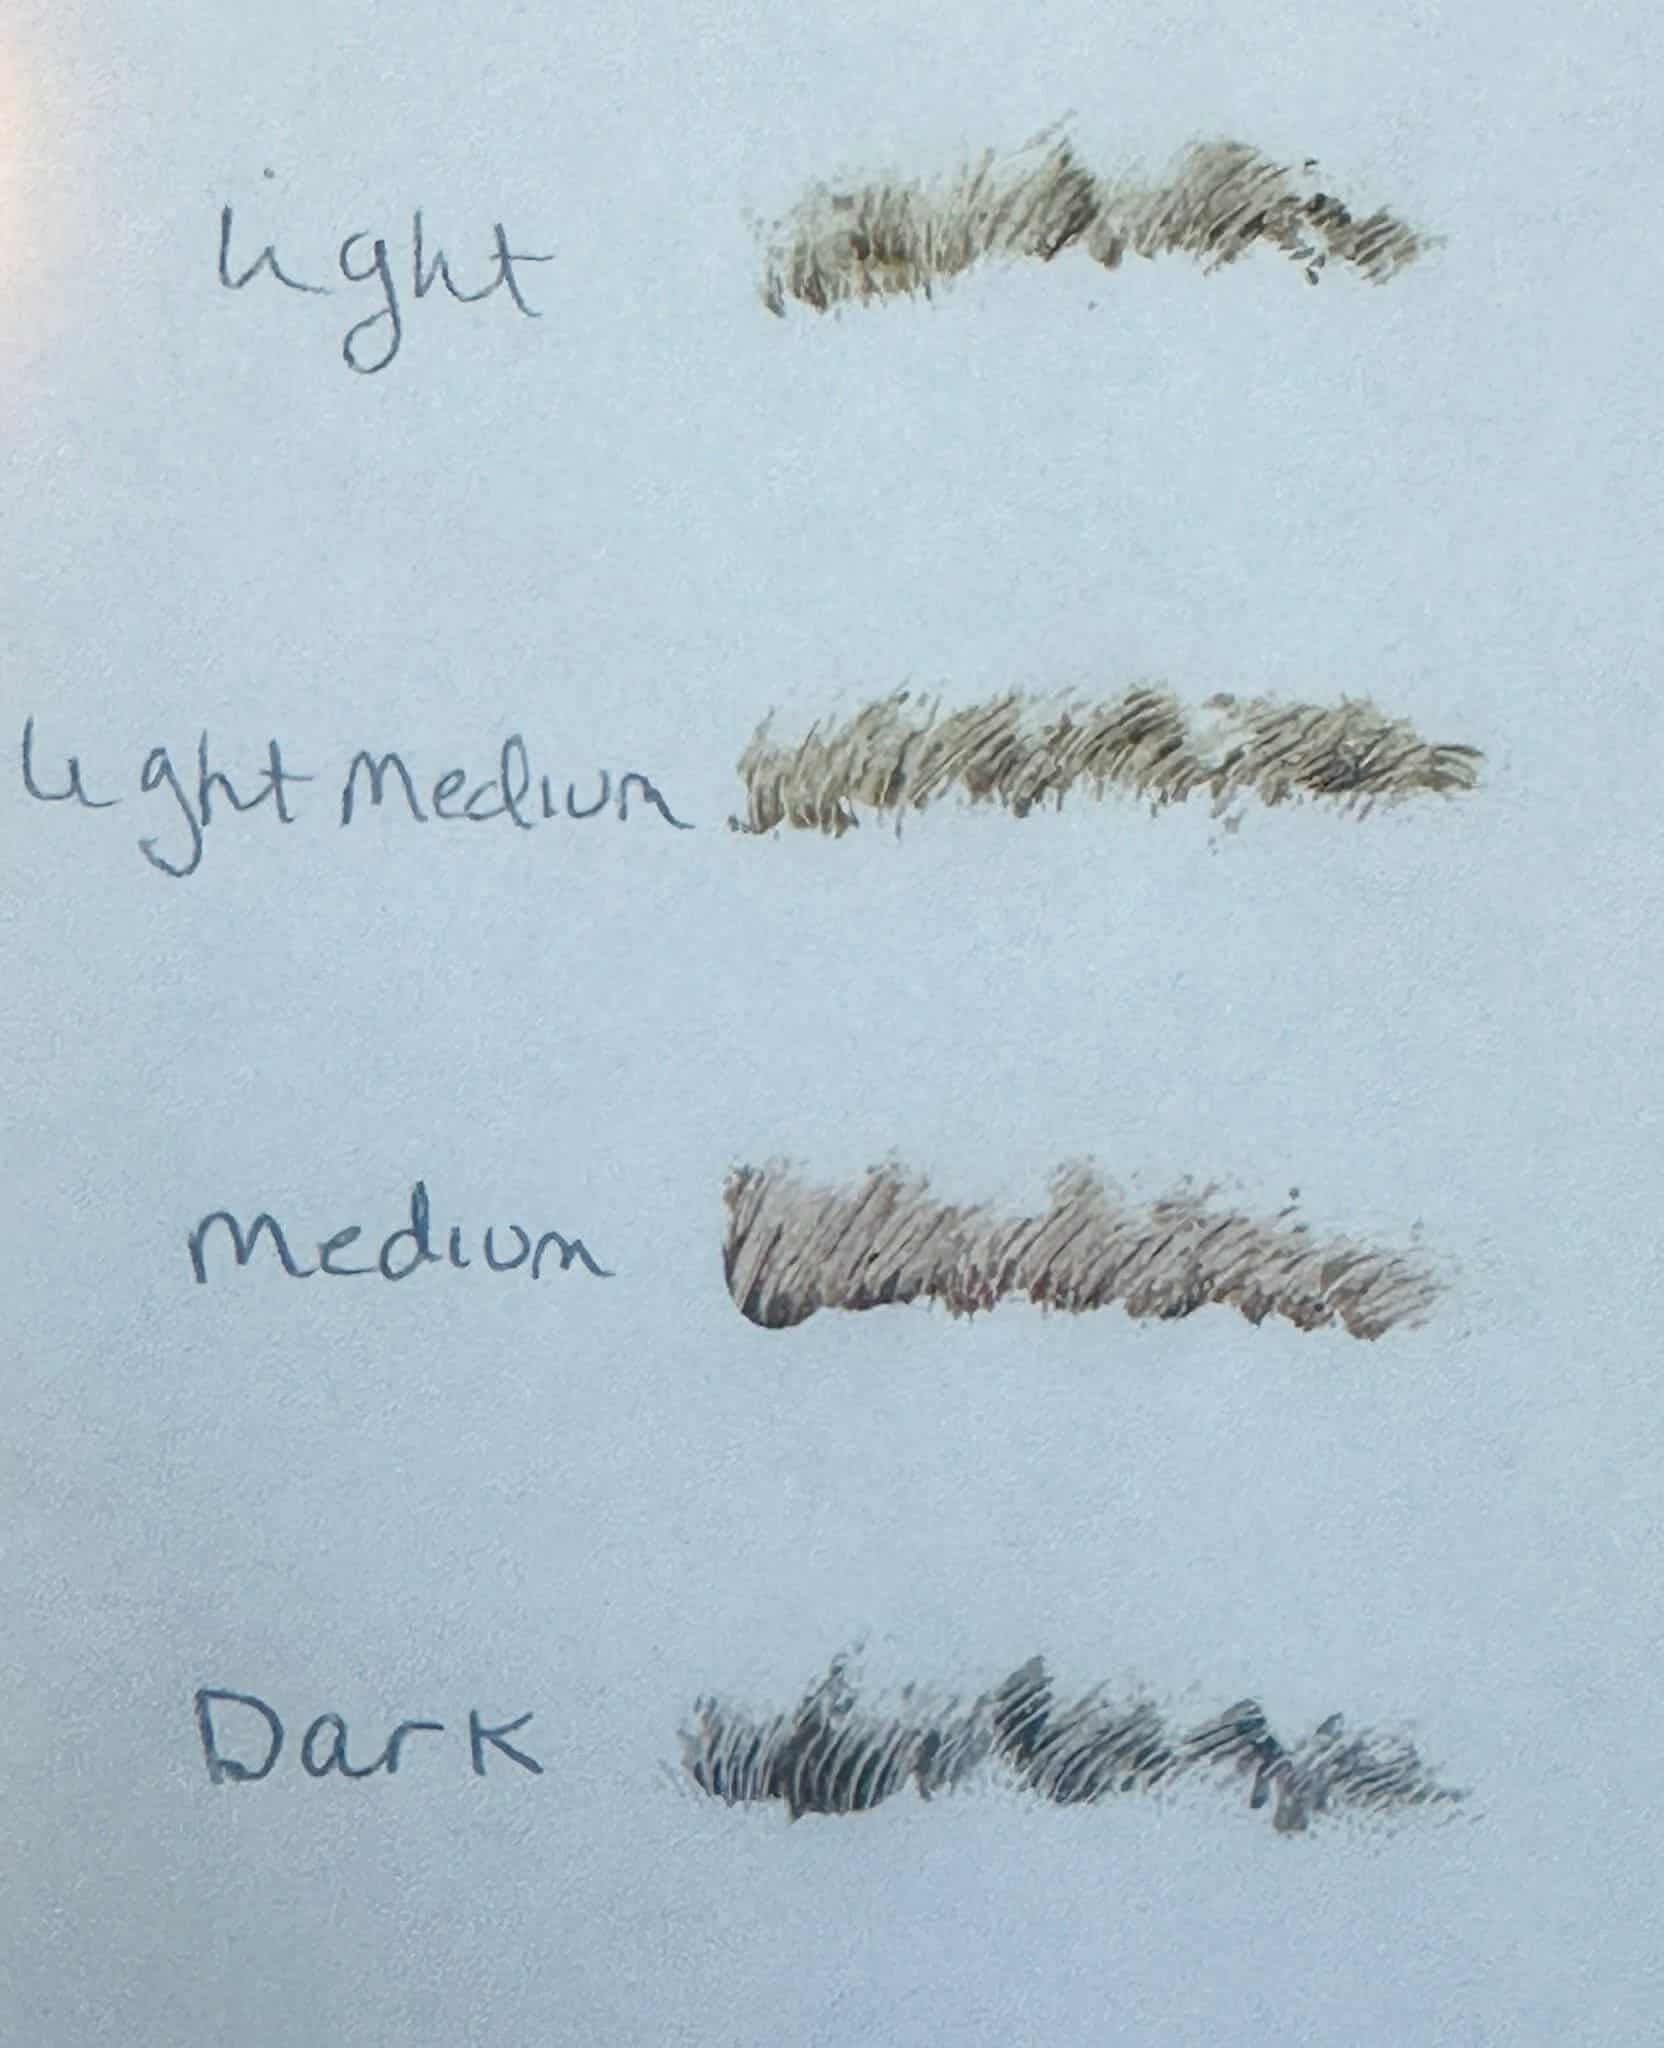 light
light medium
medium
Dark